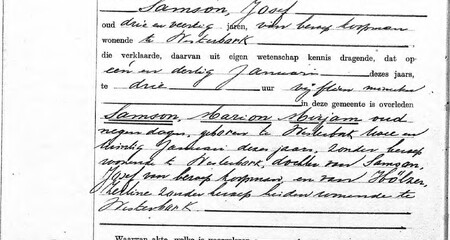 Samson, Josef
oud drie en veertig jaren, van beroep koopman
wonende te Westerbork
die verklaarde, daarvan uit eigen wetenschap kennis dragende, dat op
een en dertig Januari dezes jaars,
te drie uur vijftien minuten
in deze gemeente is overleden
Samson, Marion Mirjam oud
negen dagen, geboren te Westerbork twee en
twintig Januari dezes jaars, zonder beroep
wonende te Westerbork, dochter van Samson,
Josef van beroep koopman, en van Hölzer,
zonder beroep beiden wonende te
Westerbork
Waarvan akte, welke is voorgelezen